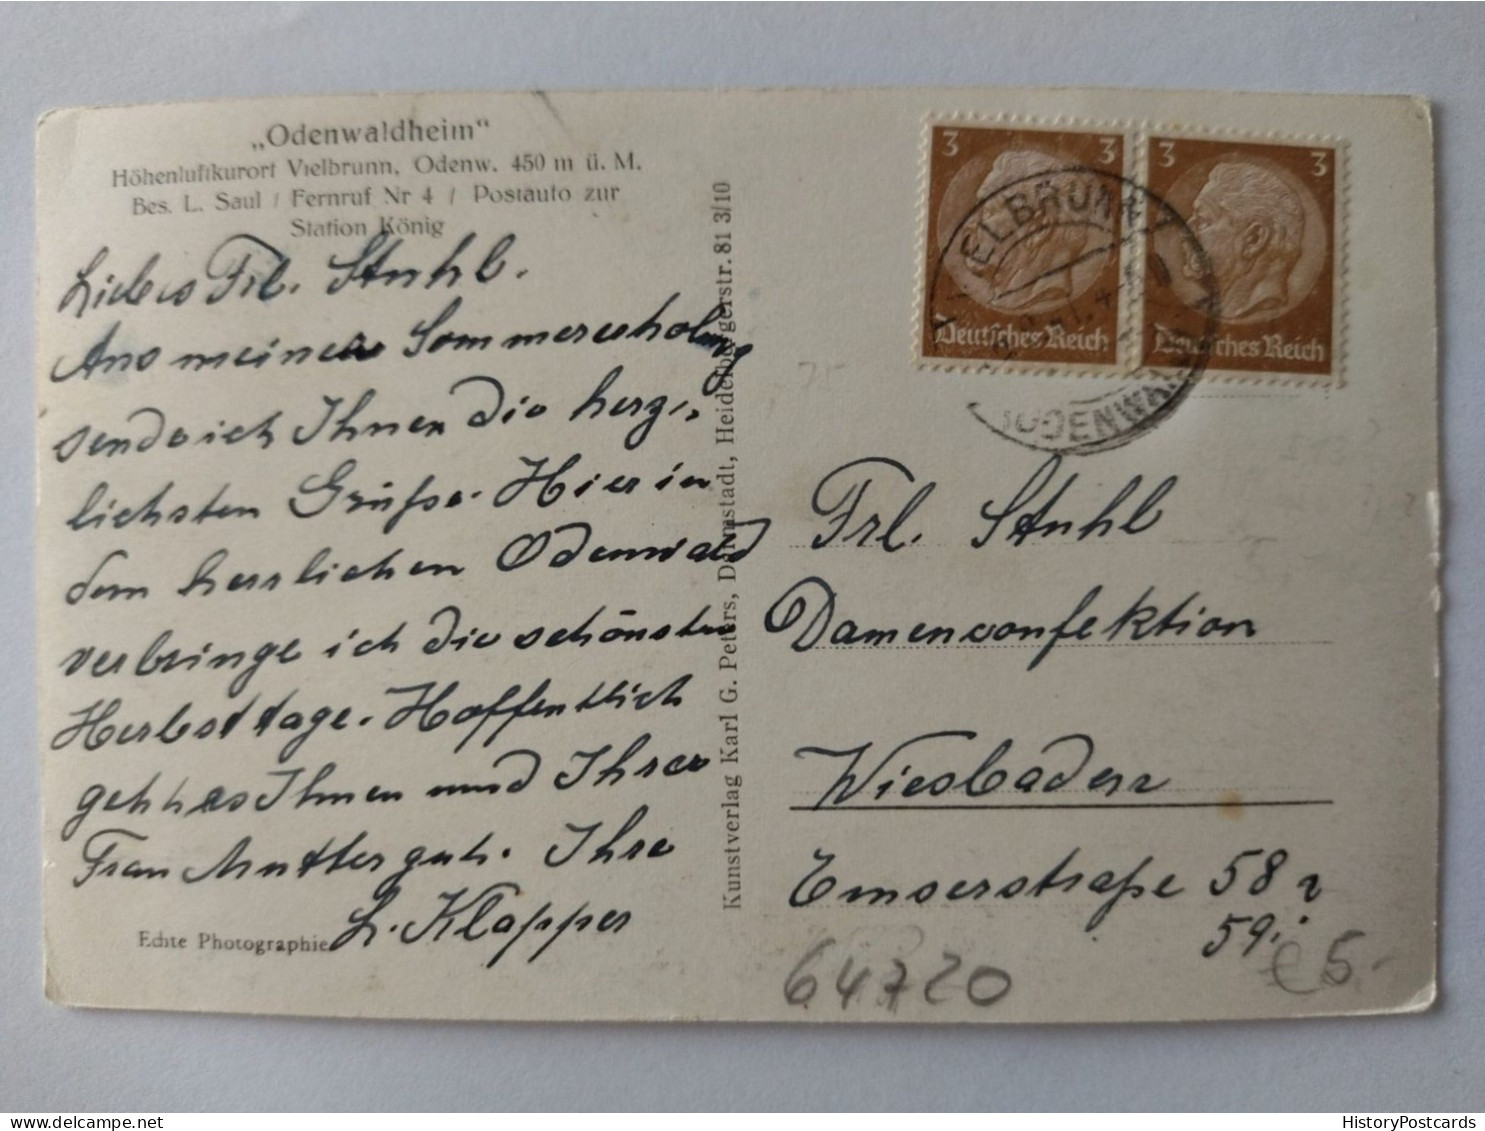 „Odenwaldheim“
Höhenluftkurort Vielbrunn, Odenw. 450 m ü. M.
Bes. L. Saul / Fernruf Nr 4 / Postauto zur
Station König
Liebes Frl. Stuhl.
Aus meiner Sommererholung
sende ich Ihnen die herz-
lichsten Grüße. Hier in
dem herrlichen Odenwald
verbringe ich die schönsten
Herbsttage. Hoffentlich
geht es Ihnen und Ihrer
Frau Mutter gut. Ihre
L. Klapper
Echte Photographie
Kunstverlag Karl G. Peters, Darmstadt, Heidelbergerstr. 81 3/10
3 3
Deutsches Reich
3 3
Deutsches Reich
VIELBRUNN
ODENWALD
Frl. Stuhl
Damenconfektion
Wiesbaden
Emserstraße 58
59.
64720
€ 5-
HistoryPostcards